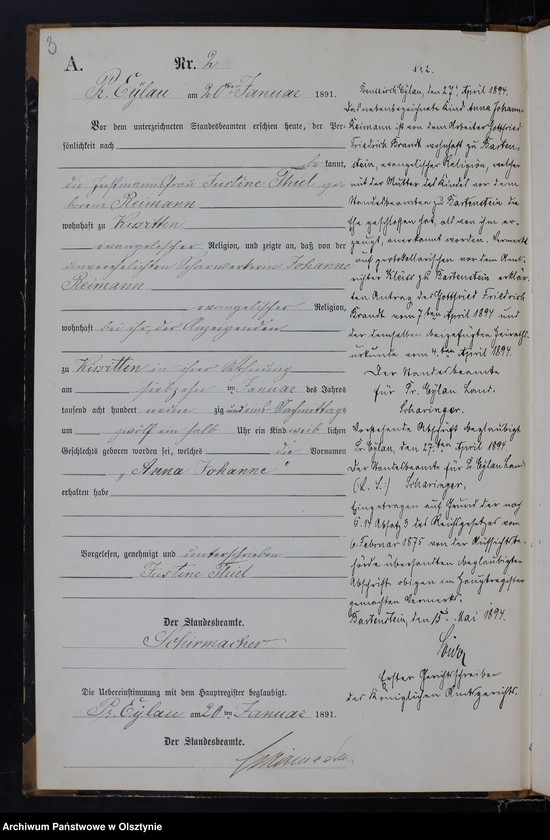 3
A.
Nr. 2
Pr. Eylau am 20ten Januar 1891.
Vor dem unterzeichneten Standesbeamten erschien heute, der Per-
sönlichkeit nach
be kannt,
die Instmannsfrau Justine Thiel ge-
borene Reimann
wohnhaft zu Kissitten
evangelischer Religion, und zeigte an, daß von der
unverehelichten Scharwerkerin Johanne
Reimann
evangelischer Religion,
wohnhaft bei ihr, der Anzeigenden
zu Kissitten in ihrer Wohnung
am siebzehn ten Januar des Jahres
tausend acht hundert neun zig und eins Nachmittags
um zwölf ein halb Uhr ein Kind weib lichen
Geschlechts geboren worden sei, welches die Vornamen
„Anna Johanne"
erhalten habe
Vorgelesen, genehmigt und unterschrieben
Justine Thiel
Der Standesbeamte.
Schirmacher
Die Uebereinstimmung mit dem Hauptregister beglaubigt.
Pr. Eylau am 20ten Januar 1891.
Der Standesbeamte.
Schirmacher
No 2.
Eylau, den 27. April 1894.
Das nebenbezeichnete Kind Anna Johanne
Reimann ist von dem Arbeiter Gottfried
Friedrich Brandt wohnhaft zu Barten-
stein, evangelischer Religion, welcher
mit der Mutter des Kindes vor dem
Standesbeamten zu Bartenstein die
Ehe geschlossen hat, als von ihm er-
zeugt, anerkannt worden. Vermerkt
auf protokollarischen vor dem Amts-
richter zu Bartenstein erklär-
ten Antrag des Gottfried Friedrich
Brandt vom 7ten April 1894 und
der demselben beigefügten Heiraths-
urkunde vom 4ten April 1894.
Der Standesbeamte
für Pr. Eylau Land.
Scharinger.
Vorstehende Abschrift beglaubigt
Pr. Eylau, den 27ten April 1894
Der Standesbeamte für Pr. Eylau Land
(L. S.) Scharinger.
Eingetragen auf Grund der nach
§. 14 Absatz 3 des Reichsgesetzes vom
6. Februar 1875 von der Aufsichtsbe-
hörde übersandten beglaubigten
Abschrift obigen im Hauptregister
gemachten Vermerks.
Bartenstein, den 15. Mai 1894.
Erster Gerichtsschreiber
des Königlichen Amtsgerichts.
Archiwum Państwowe w Olsztynie